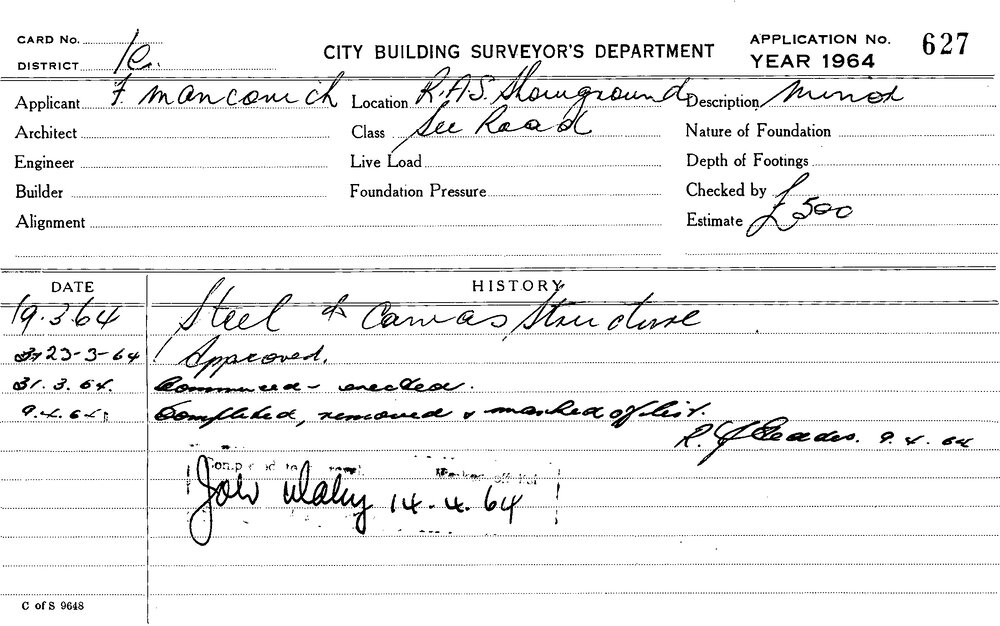 CARD No.
CITY BUILDING SURVEYOR'S DEPARTMENT
APPLICATION No. 627
DISTRICT
YEAR 1964
Applicant F. Mancovich Location R.A.S. Showground Description Minor
Architect Class See Road Nature of Foundation
Engineer Live Load Depth of Footings
Builder Foundation Pressure Checked by
Alignment Estimate £500
DATE HISTORY
19.3.64 Steel & Canvas Structure
23-3-64 Approved.
31.3.64. Commenced - erected.
9.4.64 Completed, removed & marked off list.
R. J. 9.4.64
Marked off list
14.4.64
C of S 9648